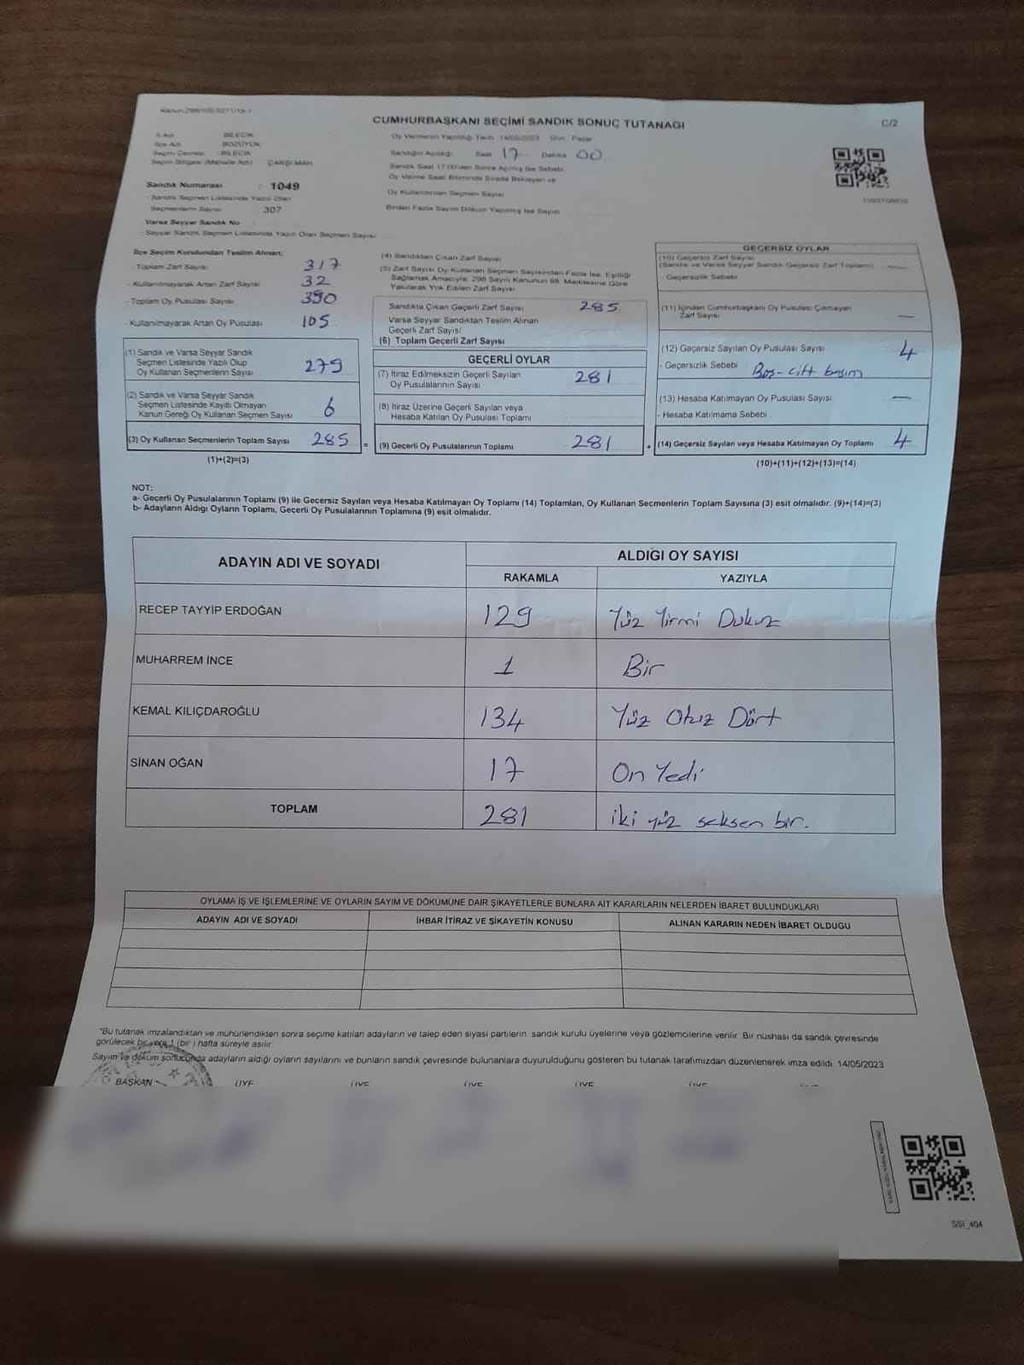 CUMHURBAŞKANI SEÇİMİ SANDIK SONUÇ TUTANAĞI
C/2
İl Adı BİLECİK
İlçe Adı BOZÜYÜK
Seçim Çevresi BİLECİK
Seçim Bölgesi (Mahalle Adı) ÇARŞI MAH
Sandık Numarası : 1049
Sandık Seçmen Listesinde Yazılı Olan
Seçmenlerin Sayısı : 307
Varsa Seyyar Sandık No
Seyyar Sandık Seçmen Listesinde Yazılı Olan Seçmen Sayısı
Oy Vermenin Yapıldığı Tarih : 14/05/2023 Gün : Pazar
Sandığın Açıldığı Saat 17 Dakika 00
Sandık Saat 17:00'den Sonra Açılmış İse Sebebi
Oy Verme Saati Bitiminde Sırada Bekleyen ve
Oy Kullandırılan Seçmen Sayısı
Birden Fazla Sayım Döküm Yapılmış İse Sayısı
İlçe Seçim Kurulundan Teslim Alınan:
- Toplam Zarf Sayısı 317
- Kullanılmayarak Artan Zarf Sayısı 32
- Toplam Oy Pusulası Sayısı 390
- Kullanılmayarak Artan Oy Pusulası 105
(1) Sandık ve Varsa Seyyar Sandık
Seçmen Listesinde Yazılı Olup
Oy Kullanan Seçmenlerin Sayısı 279
(2) Sandık ve Varsa Seyyar Sandık
Seçmen Listesinde Kayıtlı Olmayan
Kanun Gereği Oy Kullanan Seçmen Sayısı 6
(3) Oy Kullanan Seçmenlerin Toplam Sayısı 285 =
(1)+(2)=(3)
(4) Sandıktan Çıkan Zarf Sayısı
(5) Zarf Sayısı Oy Kullanan Seçmen Sayısından Fazla İse, Eşitliği
Sağlamak Amacıyla, 298 Sayılı Kanunun 98. Maddesine Göre
Yakılarak Yok Edilen Zarf Sayısı
Sandıkta Çıkan Geçerli Zarf Sayısı 285
Varsa Seyyar Sandıktan Teslim Alınan
Geçerli Zarf Sayısı
(6) Toplam Geçerli Zarf Sayısı
GEÇERLİ OYLAR
(7) İtiraz Edilmeksizin Geçerli Sayılan
Oy Pusulalarının Sayısı 281
(8) İtiraz Üzerine Geçerli Sayılan veya
Hesaba Katılan Oy Pusulası Toplamı
(9) Geçerli Oy Pusulalarının Toplamı 281 +
GEÇERSİZ OYLAR
(10) Geçersiz Zarf Sayısı
(Sandık ve Varsa Seyyar Sandık Geçersiz Zarf Toplamı) —
- Geçersizlik Sebebi
(11) İçinden Cumhurbaşkanı Oy Pusulası Çıkmayan
Zarf Sayısı —
(12) Geçersiz Sayılan Oy Pusulası Sayısı 4
- Geçersizlik Sebebi Boş - çift basım
(13) Hesaba Katılmayan Oy Pusulası Sayısı —
- Hesaba Katılmama Sebebi
(14) Geçersiz Sayılan veya Hesaba Katılmayan Oy Toplamı 4
(10)+(11)+(12)+(13)=(14)
NOT:
a- Geçerli Oy Pusulalarının Toplamı (9) ile Geçersiz Sayılan veya Hesaba Katılmayan Oy Toplamı (14) Toplamları, Oy Kullanan Seçmenlerin Toplam Sayısına (3) eşit olmalıdır. (9)+(14)=(3)
b- Adayların Aldığı Oyların Toplamı, Geçerli Oy Pusulalarının Toplamına (9) eşit olmalıdır.
ADAYIN ADI VE SOYADI
ALDIĞI OY SAYISI
RAKAMLA YAZIYLA
RECEP TAYYİP ERDOĞAN 129 Yüz Yirmi Dokuz
MUHARREM İNCE 1 Bir
KEMAL KILIÇDAROĞLU 134 Yüz Otuz Dört
SİNAN OĞAN 17 On Yedi
TOPLAM 281 iki yüz seksen bir.
OYLAMA İŞ VE İŞLEMLERİNE VE OYLARIN SAYIM VE DÖKÜMÜNE DAİR ŞİKAYETLERLE BUNLARA AİT KARARLARIN NELERDEN İBARET BULUNDUKLARI
ADAYIN ADI VE SOYADI İHBAR İTİRAZ VE ŞİKAYETİN KONUSU ALINAN KARARIN NEDEN İBARET OLDUĞU
*Bu tutanak imzalandıktan ve mühürlendikten sonra seçime katılan adayların ve talep eden siyasi partilerin sandık kurulu üyelerine veya gözlemcilerine verilir. Bir nüshası da sandık çevresinde
görülecek bir yere 1 (bir) hafta süreyle asılır.
Sayım ve döküm sonucunda adayların aldığı oyların sayılarını ve bunların sandık çevresinde bulunanlara duyurulduğunu gösteren bu tutanak tarafımızdan düzenlenerek imza edildi. 14/05/2023
BAŞKAN ÜYE ÜYE ÜYE ÜYE ÜYE
SSI_404